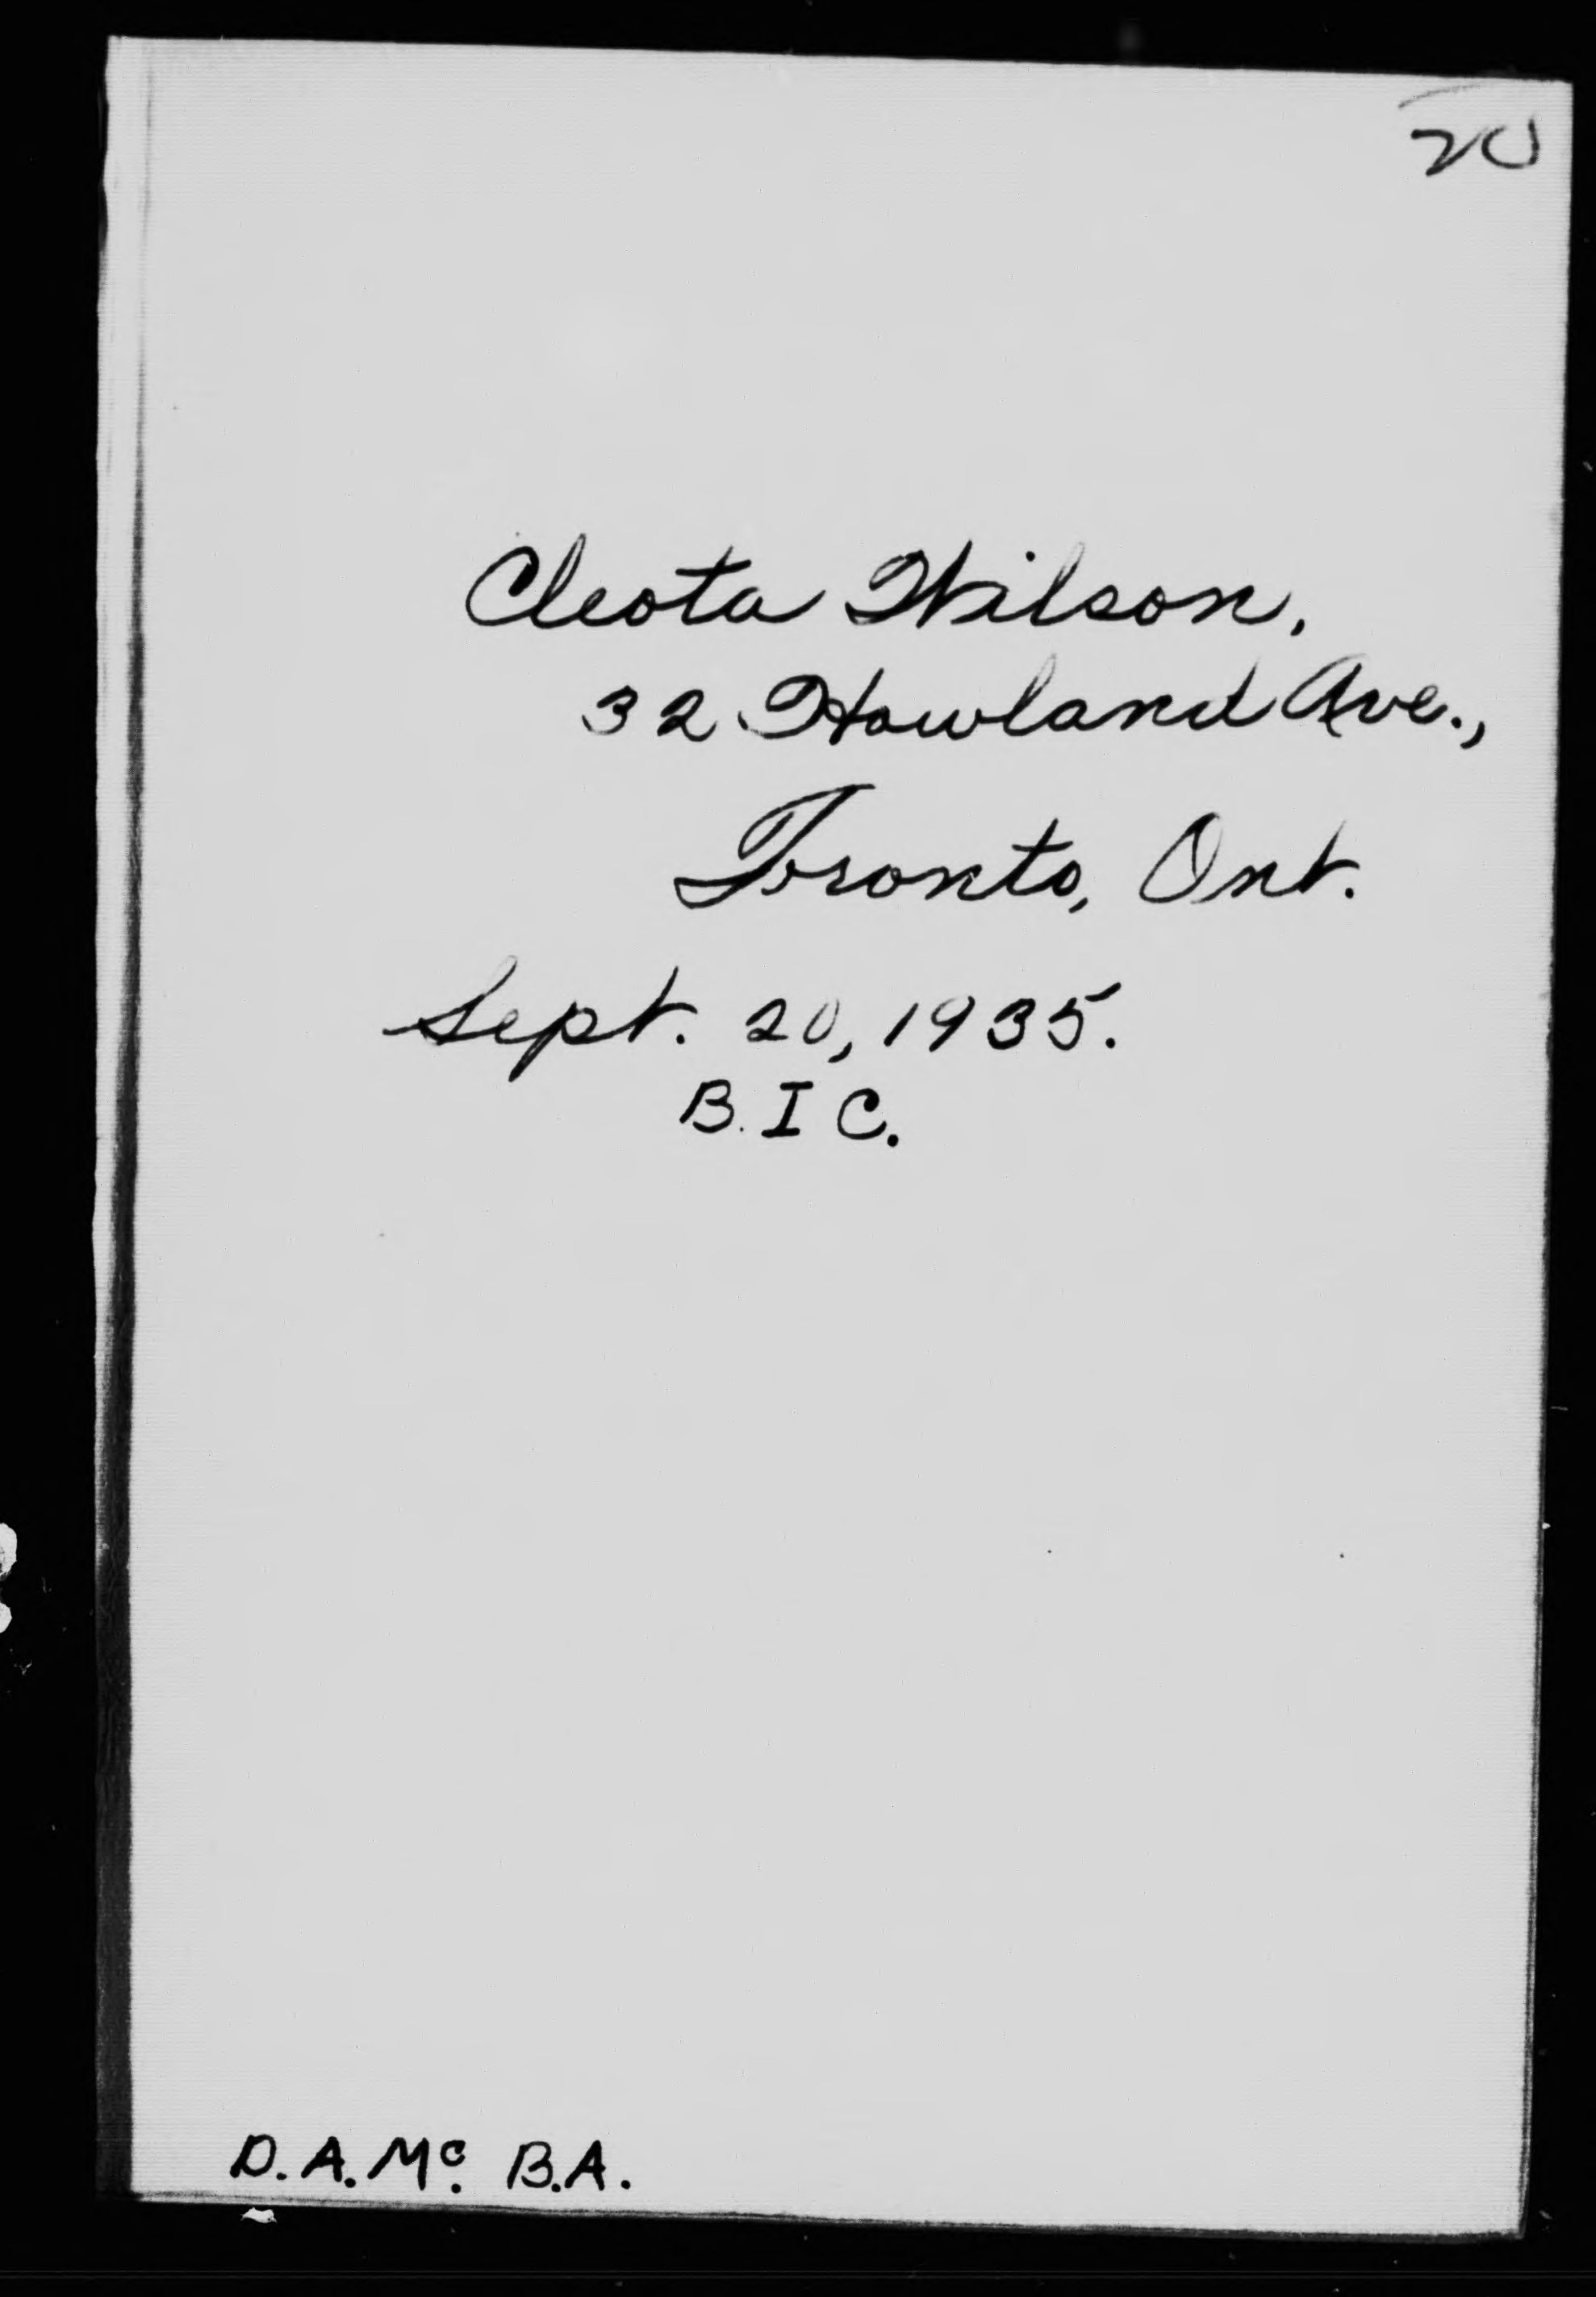 20
Cleota Wilson,
32 Howland Ave.,
Toronto, Ont.
Sept. 20, 1935.
B. I C.
D. A. Mc. B.A.